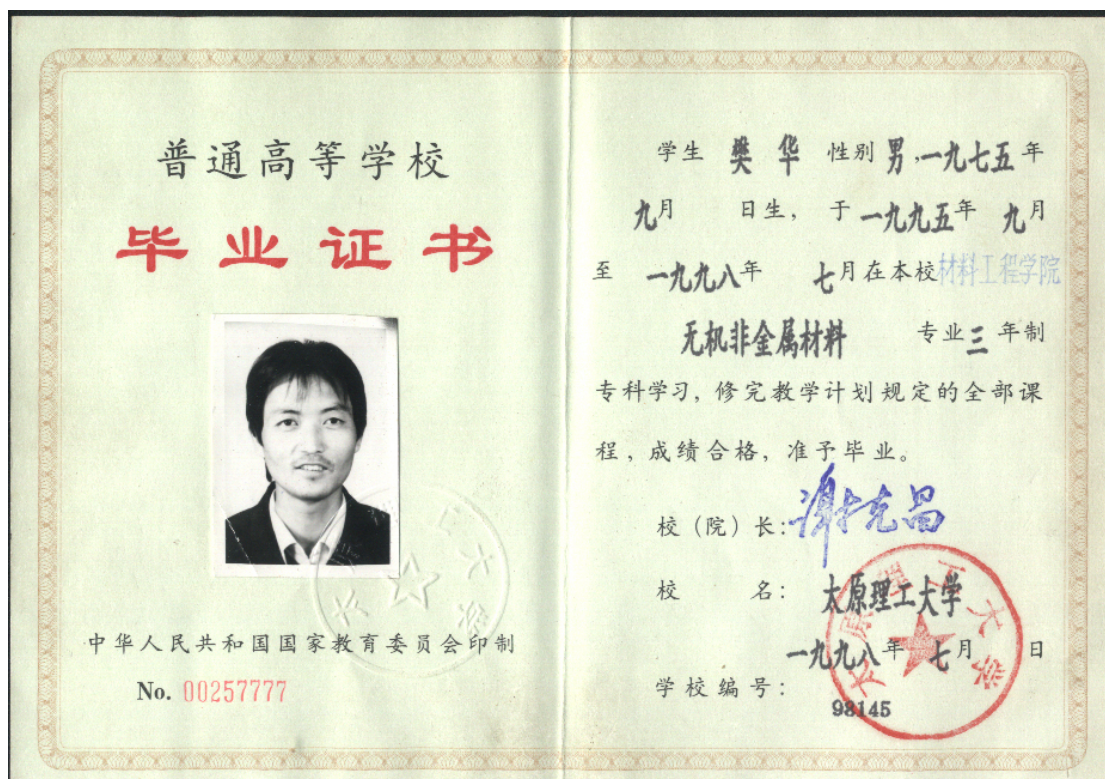 普通高等学校
毕业证书
中华人民共和国国家教育委员会印制
No. 00257777
学生 樊华 性别 男,一九七五年
九月 日生, 于一九九五年 九月
至 一九九八年 七月在本校材料工程学院
无机非金属材料 专业三年制
专科学习, 修完教学计划规定的全部课
程, 成绩合格, 准予毕业。
校(院)长: 谢克昌
校 名: 太原理工大学
一九九八年 七月 日
学校编号:
98145
太原理工大学